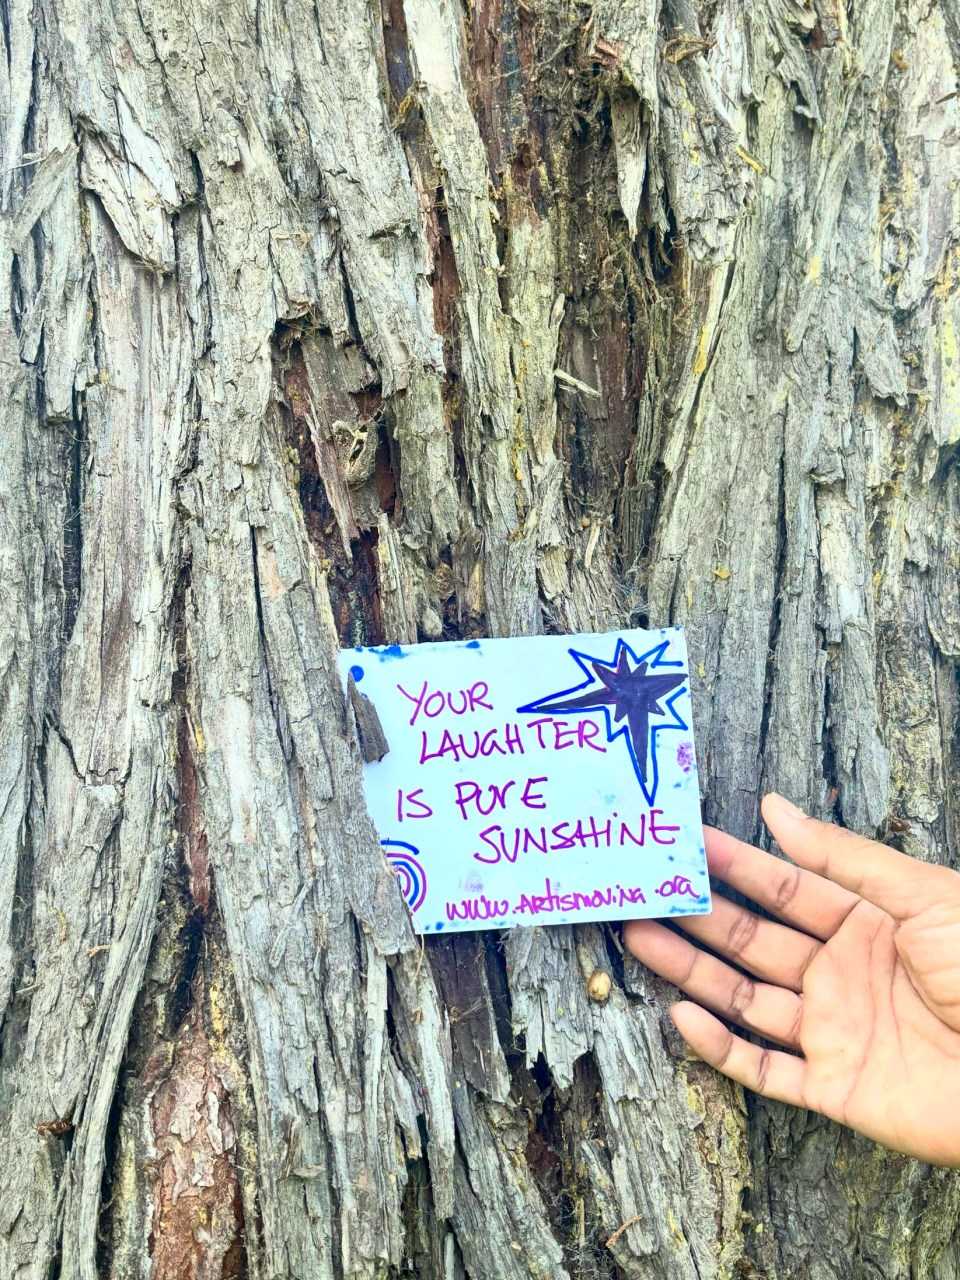 YOUR
LAUGHTER
IS PURE
SUNSHINE
www.Artismoving.org